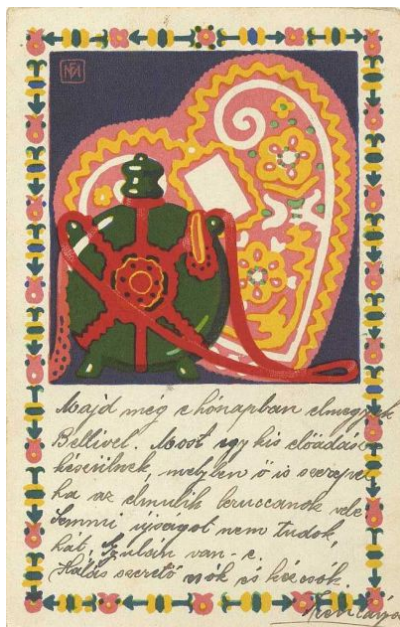 Majd még e hónapban elmegyek
Bellivel. Most egy kis előadásra
készülnek, melyben ő is szerepel
ha az elmulik leruccanok vele
Semmi ujságot nem tudok,
hát, Gyulán van-e.
Hálás szerető csók és kézcsók.